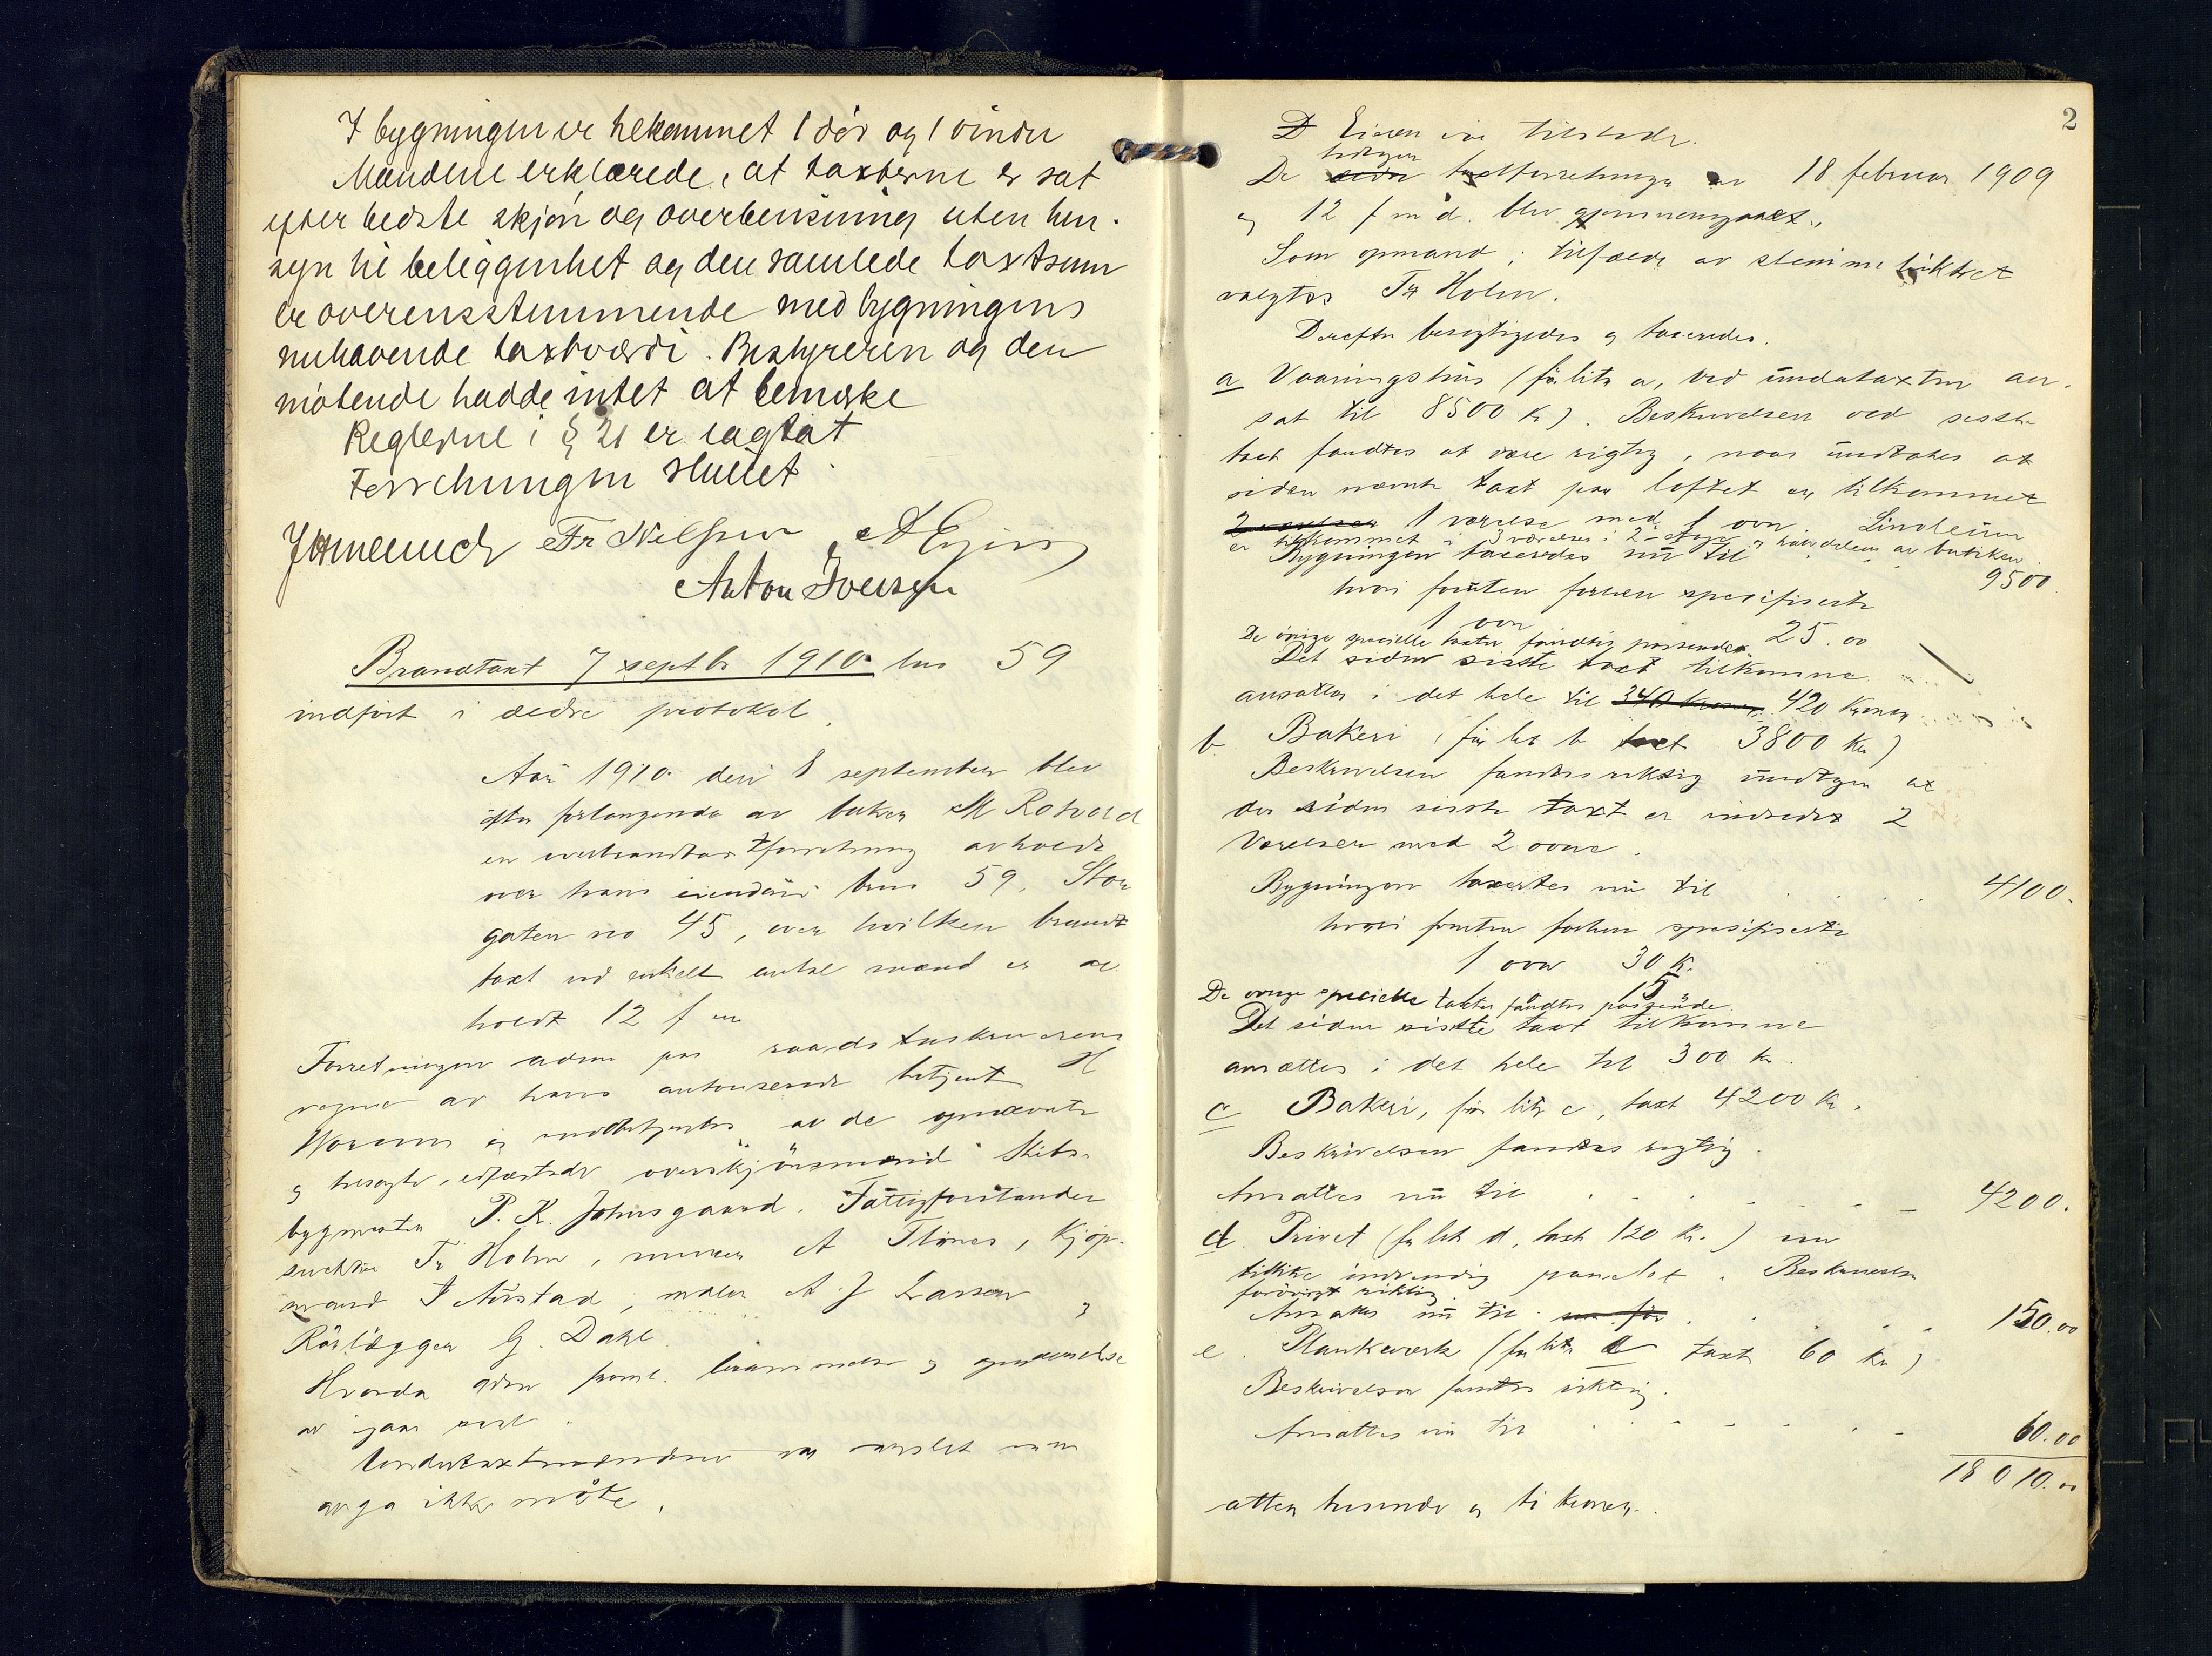 I bygningen er bekommet 1 dør og 1 vindu
Mændene erklærede, at taxterne er sat
efter bedste skjøn og overbevisning uten hen-
syn til beliggenhet og den samlede taxtsum
er overensstemmende med bygningens
nuhavende taxtværdi. Bestyreren og den
møtende hadde intet at bemerke
Reglerne i § 21 er iagtat
Forretningen sluttet.
Fr Nilssen
Anton Iversen
Brandtaxt 7 septbr 1910. hus 59
indført i ældre protokol.
Aar 1910 den 8 september blev
efter forlangende av baker M Rotvold
en overbrandtaxtforretning avholdt
over hans eiendom hus 59, Stor
gaten no 45, over hvilken brandt
taxt ved enkelt antal mænd er av
holdt 12 f m
Forretningen adm paa raadstuskriverens
vegne av hans autoriserede betjent H
og besagte, edfæstede overskjønsmænd Skibs-
bygmester P. K. Johnsgaard, Fattigforstander
Fr Holm, murer A Tiines, Kjøp-
mand J Austad, maler A J Larsen og
Rørlægger G. Dahl.
av igaar
Undertaxtmændene var varslet men
ikke møte.
2
D Eieren var tilstede.
De tidligere sidste taxtforretninger av 18 februar 1909
og 12 f m d. blev gjennemgaaet.
Som opmand i tilfælde av stemmelikhet
valgtes Fr Holm.
Derefter besigtigedes og taxeredes.
a Vaaningshus (før litr a, ved undertaxten an-
sat til 8500 kr). Beskrivelsen ved sisste
taxt fandtes at være rigtig, naar undtates at
siden nævnte taxt paa loftet er tilkommet
2 værelser 1 værelse med 1 ovn. Linoleum
er tilkommet i 3 værelser i 2 etage og halvdelen av butiken
Bygningen taxeredes nu til 9500
hvori foruten forhen spesifiserte
1 ovn 25.00
De øvrige specielle taxter fandtes passende
Det siden sisste taxt tilkomne
ansattes i det hele til 340 kroner 420 Kroner
b. Bakeri (før lit b taxt 3800 Kr)
Beskrivelsen fandtes riktig undtagen at
der siden sisste taxt er indredet 2
Værelser med 2 ovne.
Bygningen taxertes nu til 4100.
hvori foruten forhen spesifiserte
1 ovn 30 K.
1 " 15
De øvrige specielle taxter fandtes passende
Det siden sisste taxt tilkomne
ansættes i det hele til 300 kr.
c Bakeri, før litr c, taxt 4200 Kr.
Beskrivelsen fandtes rigtig.
Ansattes nu til 4200.
d. Privet (før lit d, taxt 120 Kr.) nu
tillike indvendig panelet. Beskrivelsen
forøvrigt riktig.
Ansattes nu til som før 150.00
e. Plankeværk (før litr e taxt 60 kr)
Beskrivelsen fandtes riktig.
Ansattes nu til 60.00
18010.00
atten tusende og ti kroner.